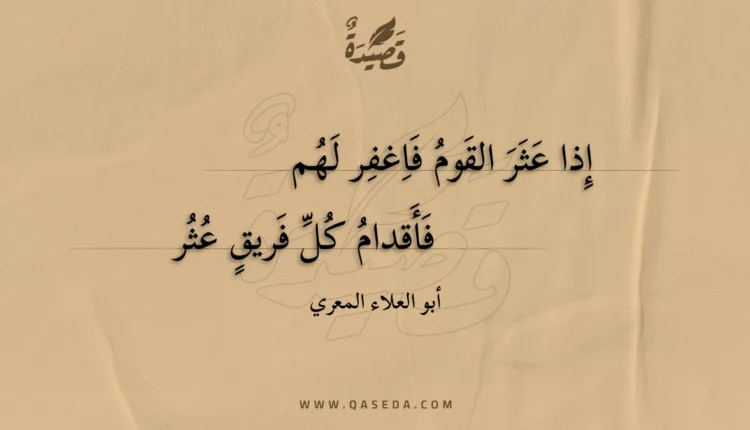 قَصِيدَةٌ
إِذا عَثَرَ القَومُ فَاِغفِر لَهُم
فَأَقدامُ كُلِّ فَريقٍ عُثُر
أبو العلاء المعري
WWW.QASEDA.COM